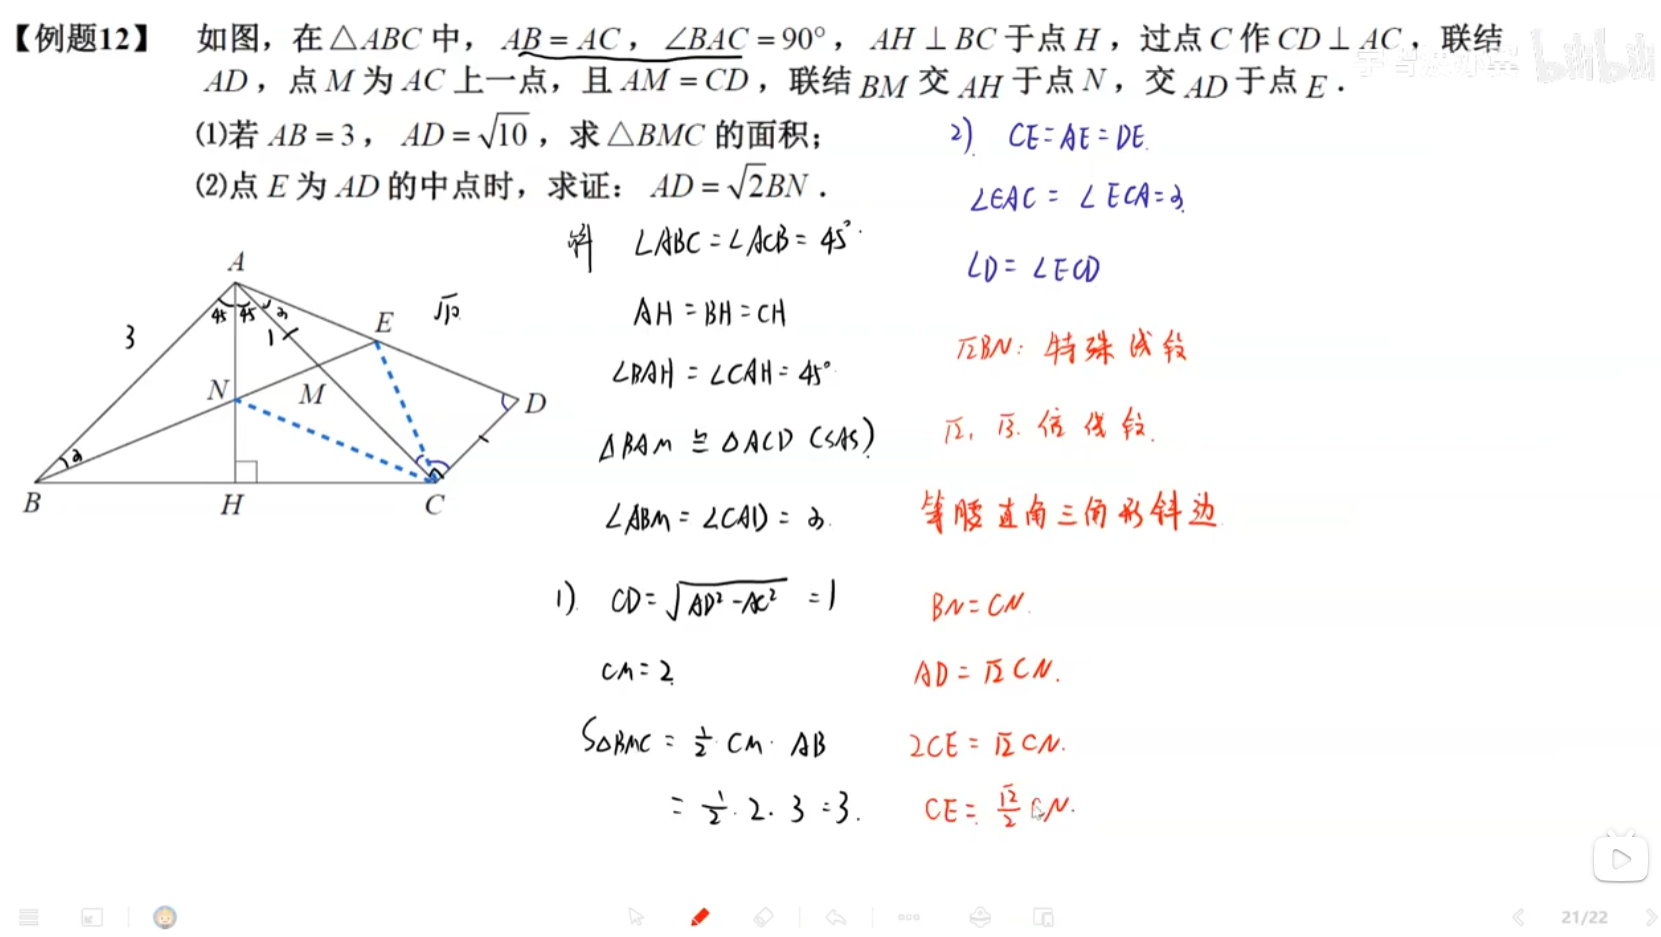 【例题12】 如图，在△ABC 中，AB = AC，∠BAC = 90°，AH ⊥ BC 于点 H，过点 C 作 CD ⊥ AC，联结
AD，点 M 为 AC 上一点，且 AM = CD，联结 BM 交 AH 于点 N，交 AD 于点 E．
⑴若 AB = 3，AD = √10，求△BMC 的面积；
⑵点 E 为 AD 的中点时，求证：AD = √2BN．
A
45 45
1
E
√10
3
N
M
D
B
H
C
∠ABC = ∠ACB = 45°
AH = BH = CH
∠BAH = ∠CAH = 45°
△BAM ≌ △ACD (SAS)
∠ABM = ∠CAD = α
1) CD = √AD² - AC² = 1
CM = 2
S△BMC = 1/2 · CM · AB
= 1/2 · 2 · 3 = 3.
2) CE = AE = DE
∠EAC = ∠ECA = α
∠D = ∠ECD
√2BN: 特殊线段
√2, √3 倍线段.
等腰直角三角形斜边
BN = CN.
AD = √2 CN.
2CE = √2 CN.
CE = √2/2 CN.
21/22